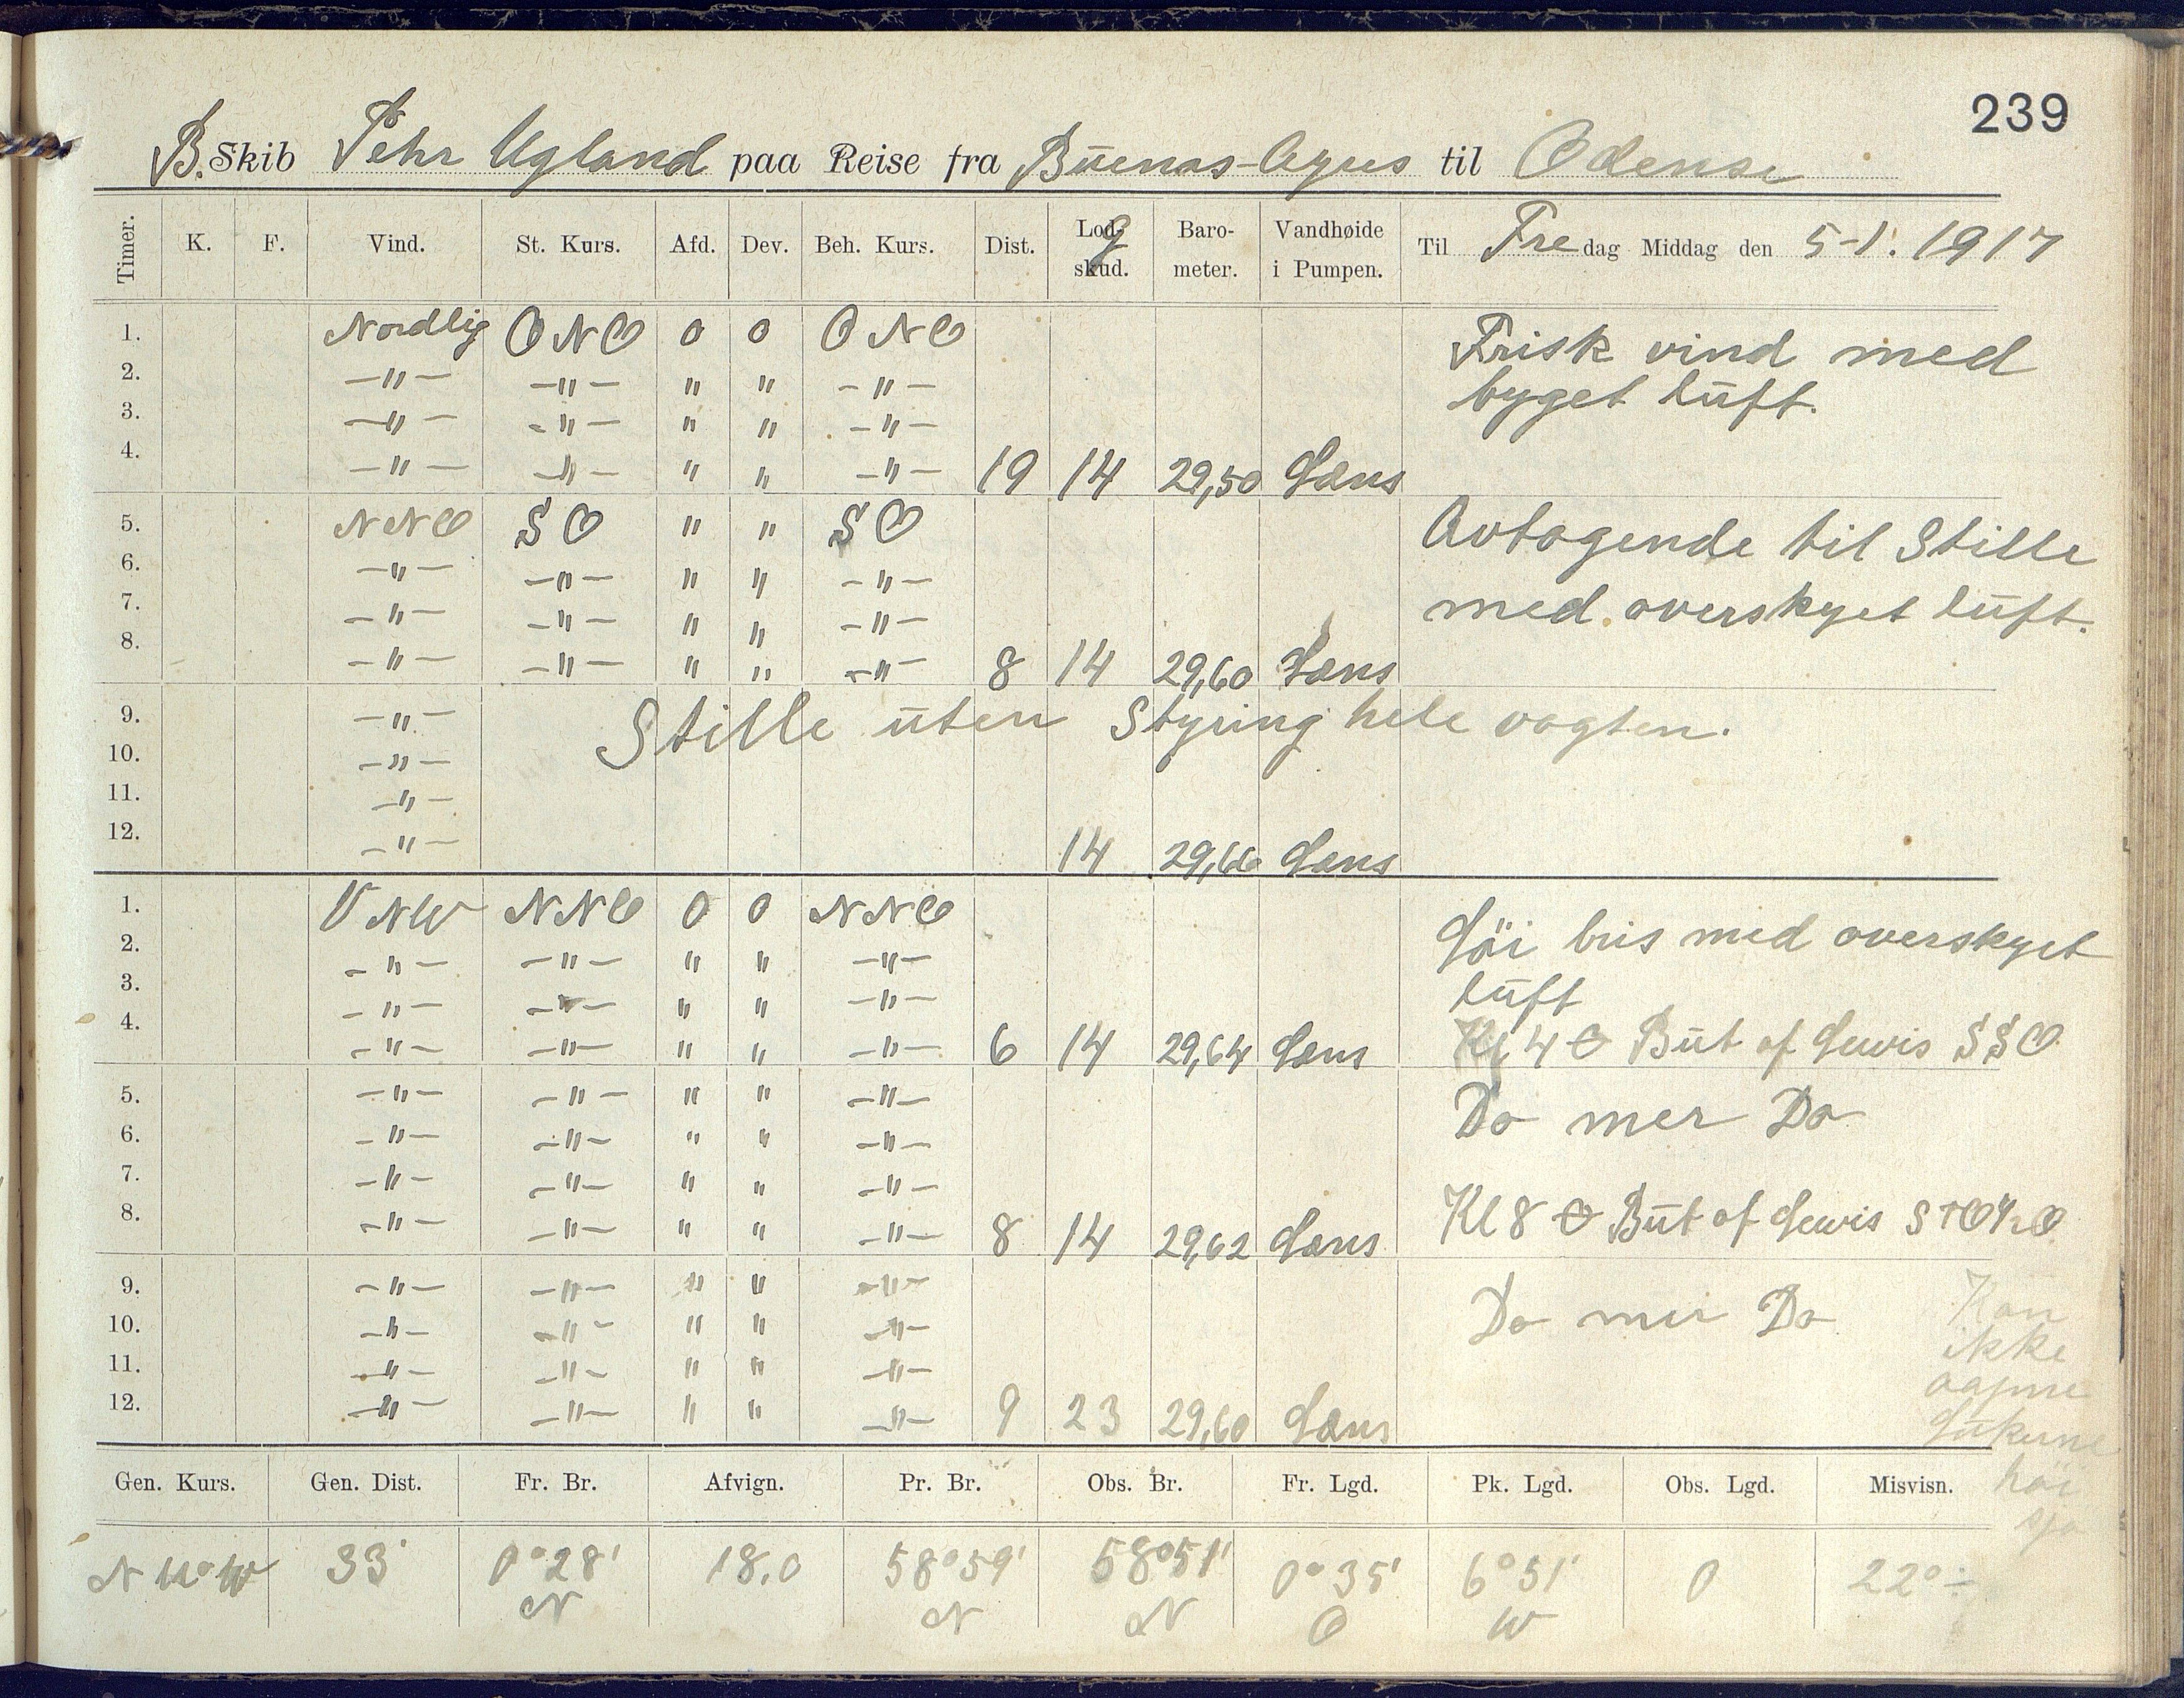 239
B. Skib Pehr Ugland paa Reise fra Buenas-Ayres til Odense
Timer. K. F. Vind. St. Kurs. Afd. Dev. Beh. Kurs. Dist. Lodg skud. Barometer. Vandhøide i Pumpen. Til Fredag Middag den 5-1. 1917
1. Nordlig ONO 0 0 ONO Frisk vind med
2. -"- -"- " " -"- byget luft.
3. -"- -"- " " -"-
4. -"- -"- " " -"- 19 14 29,50 Læns
5. NNO SO " " SO Avtagende til Stille
6. -"- -"- " " -"-
7. -"- -"- " " -"- med overskyet luft.
8. -"- -"- " " -"- 8 14 29,60 Læns
9. -"- Stille uten Styring hele vagten.
10. -"-
11. -"-
12. -"- 14 29,66 Læns
1. VNW NNO 0 0 NNO Löi bris med overskyet
2. -"- -"- " " -"-
3. -"- -"- " " -"- luft
4. -"- -"- " " -"- 6 14 29,64 Læns Kl 4 But of Lewis SSO
5. -"- -"- " " -"- Do mer Do
6. -"- -"- " " -"-
7. -"- -"- " " -"-
8. -"- -"- " " -"- 8 14 29,62 Læns Kl 8 But of Lewis
9. -"- -"- " " -"- Do mer Do Kan
10. -"- -"- " " -"- ikke
11. -"- -"- " " -"- aapne
12. -"- -"- " " -"- 9 23 29,60 Læns Lukerne
höi
sjø
Gen. Kurs. Gen. Dist. Fr. Br. Afvign. Pr. Br. Obs. Br. Fr. Lgd. Pk. Lgd. Obs. Lgd. Misvisn.
33' 0°28' N 18,0 58°59' N 58°51' N 0°35' O 6°51' W 0 22° ÷